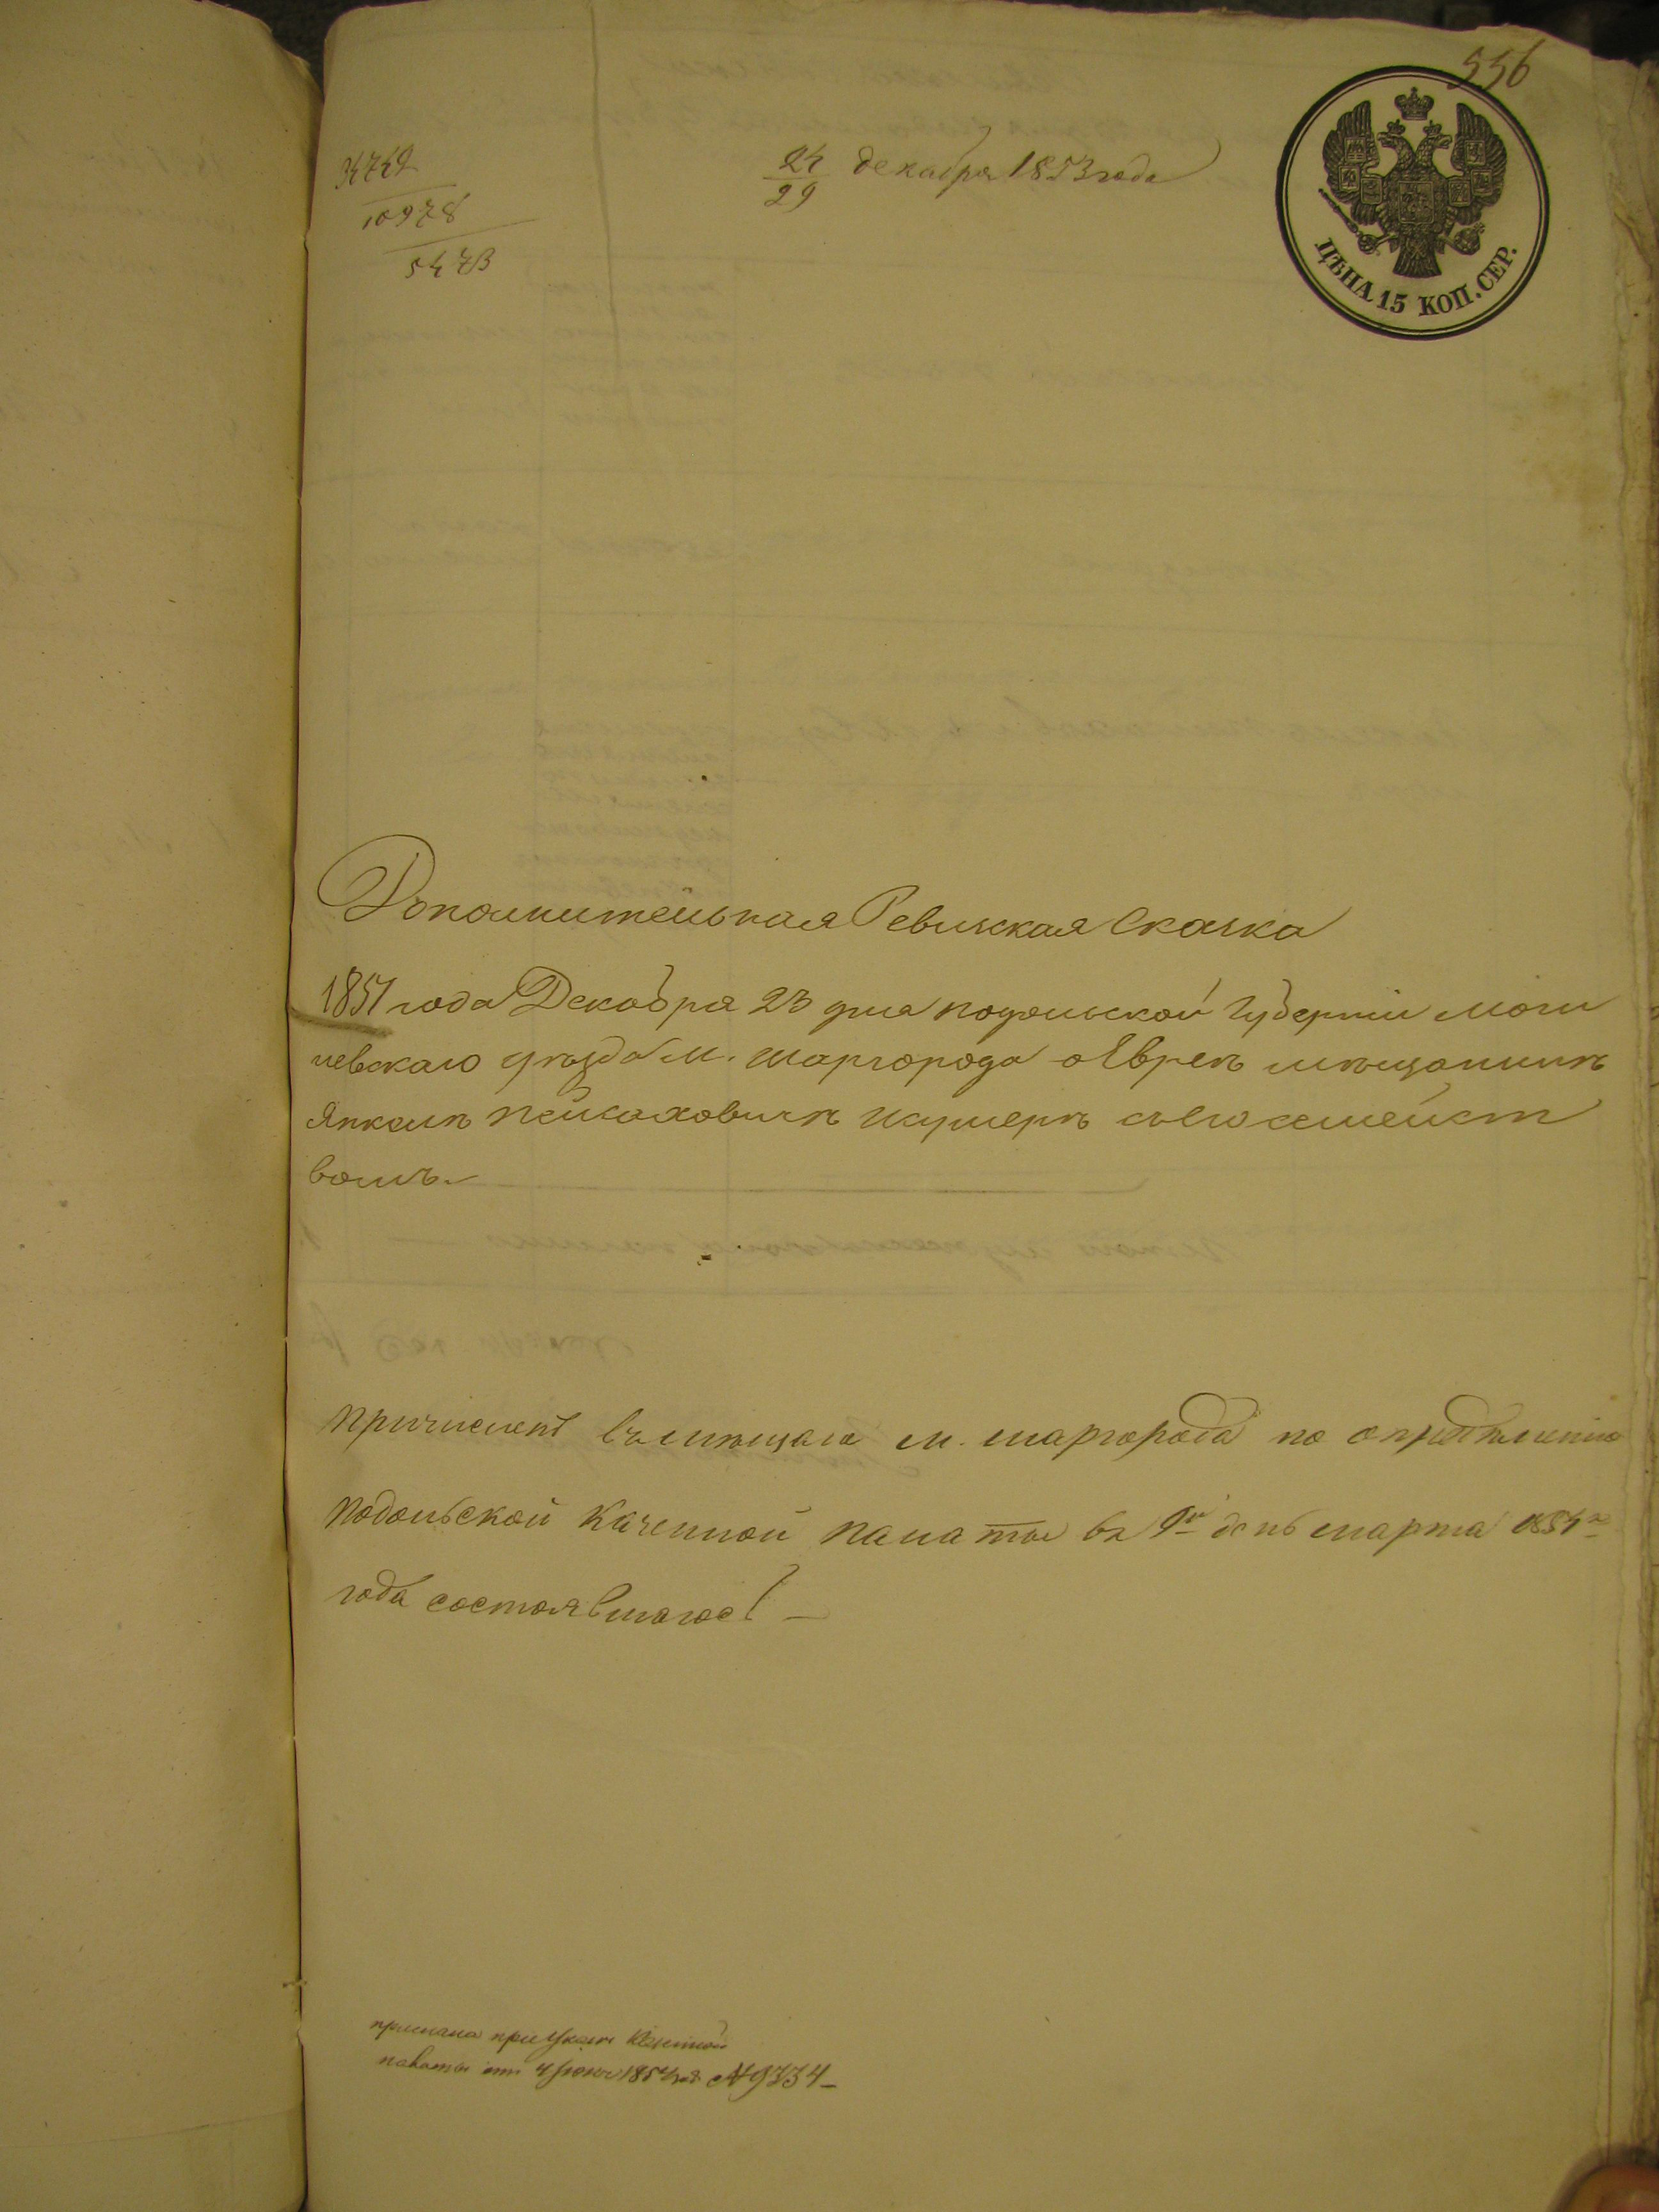 556
34742
10978
5473
24
29 декабря 1853 года
ЦѢНА 15 КОП. СЕР.
Дополнительная Ревизская Сказка
1851 года Декабря 23 дня подольской Губерніи Моги
левскаго уѣзда м. Шаргорода о Евреѣ мѣщанинѣ
Янкелѣ Пейсаховичѣ Кушерѣ съ его семейст
вомъ.
Причисленъ въ мѣщане м. Шаргорода по опредѣленію
Подольской Казенной Палаты въ 9й день марта 1854го
года состоявшагося
прислана при Указѣ Казенной
палаты отъ 4 1854 года №9334